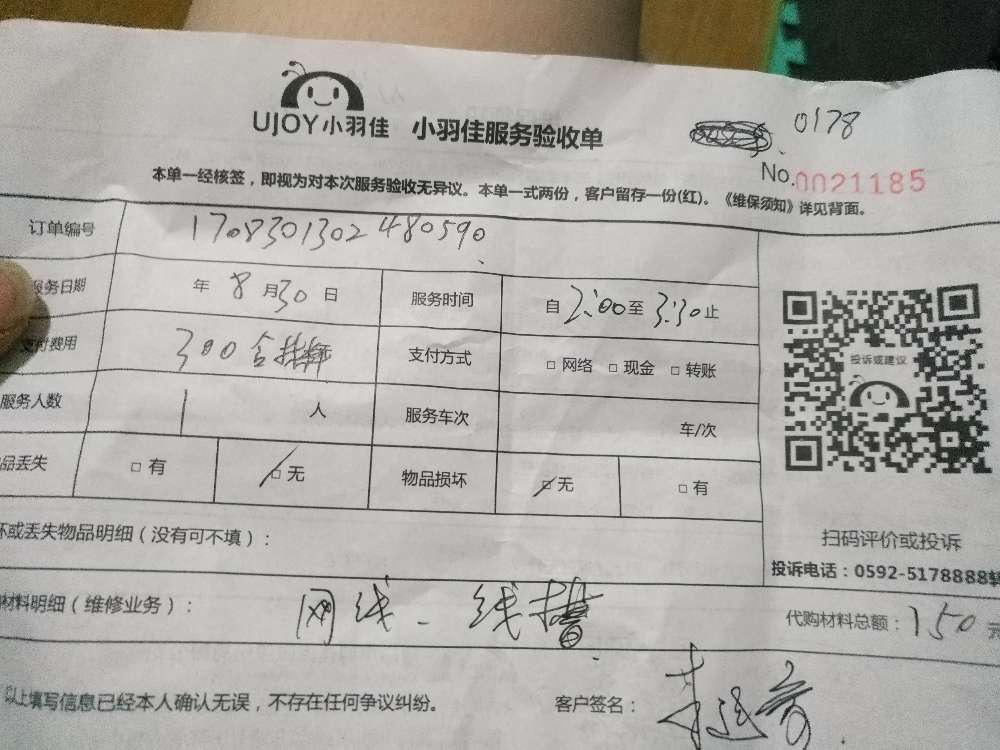 UJOY小羽佳 小羽佳服务验收单
0178
No.0021185
本单一经核签，即视为对本次服务验收无异议。本单一式两份，客户留存一份(红)。《维保须知》详见背面。
订单编号 1708301302480590
服务日期 年 8 月 30 日 服务时间 自 2:00 至 3:30 止
支付费用 300含 支付方式 □ 网络 □ 现金 □ 转账
服务人数 1 人 服务车次 车/次
品丢失 □ 有 □ 无 物品损坏 □ 无 □ 有
坏或丢失物品明细（没有可不填）：
投诉或建议
扫码评价或投诉
投诉电话：0592-5178888转
材料明细（维修业务）： 网线、线槽 代购材料总额：150元
以上填写信息已经本人确认无误，不存在任何争议纠纷。 客户签名：